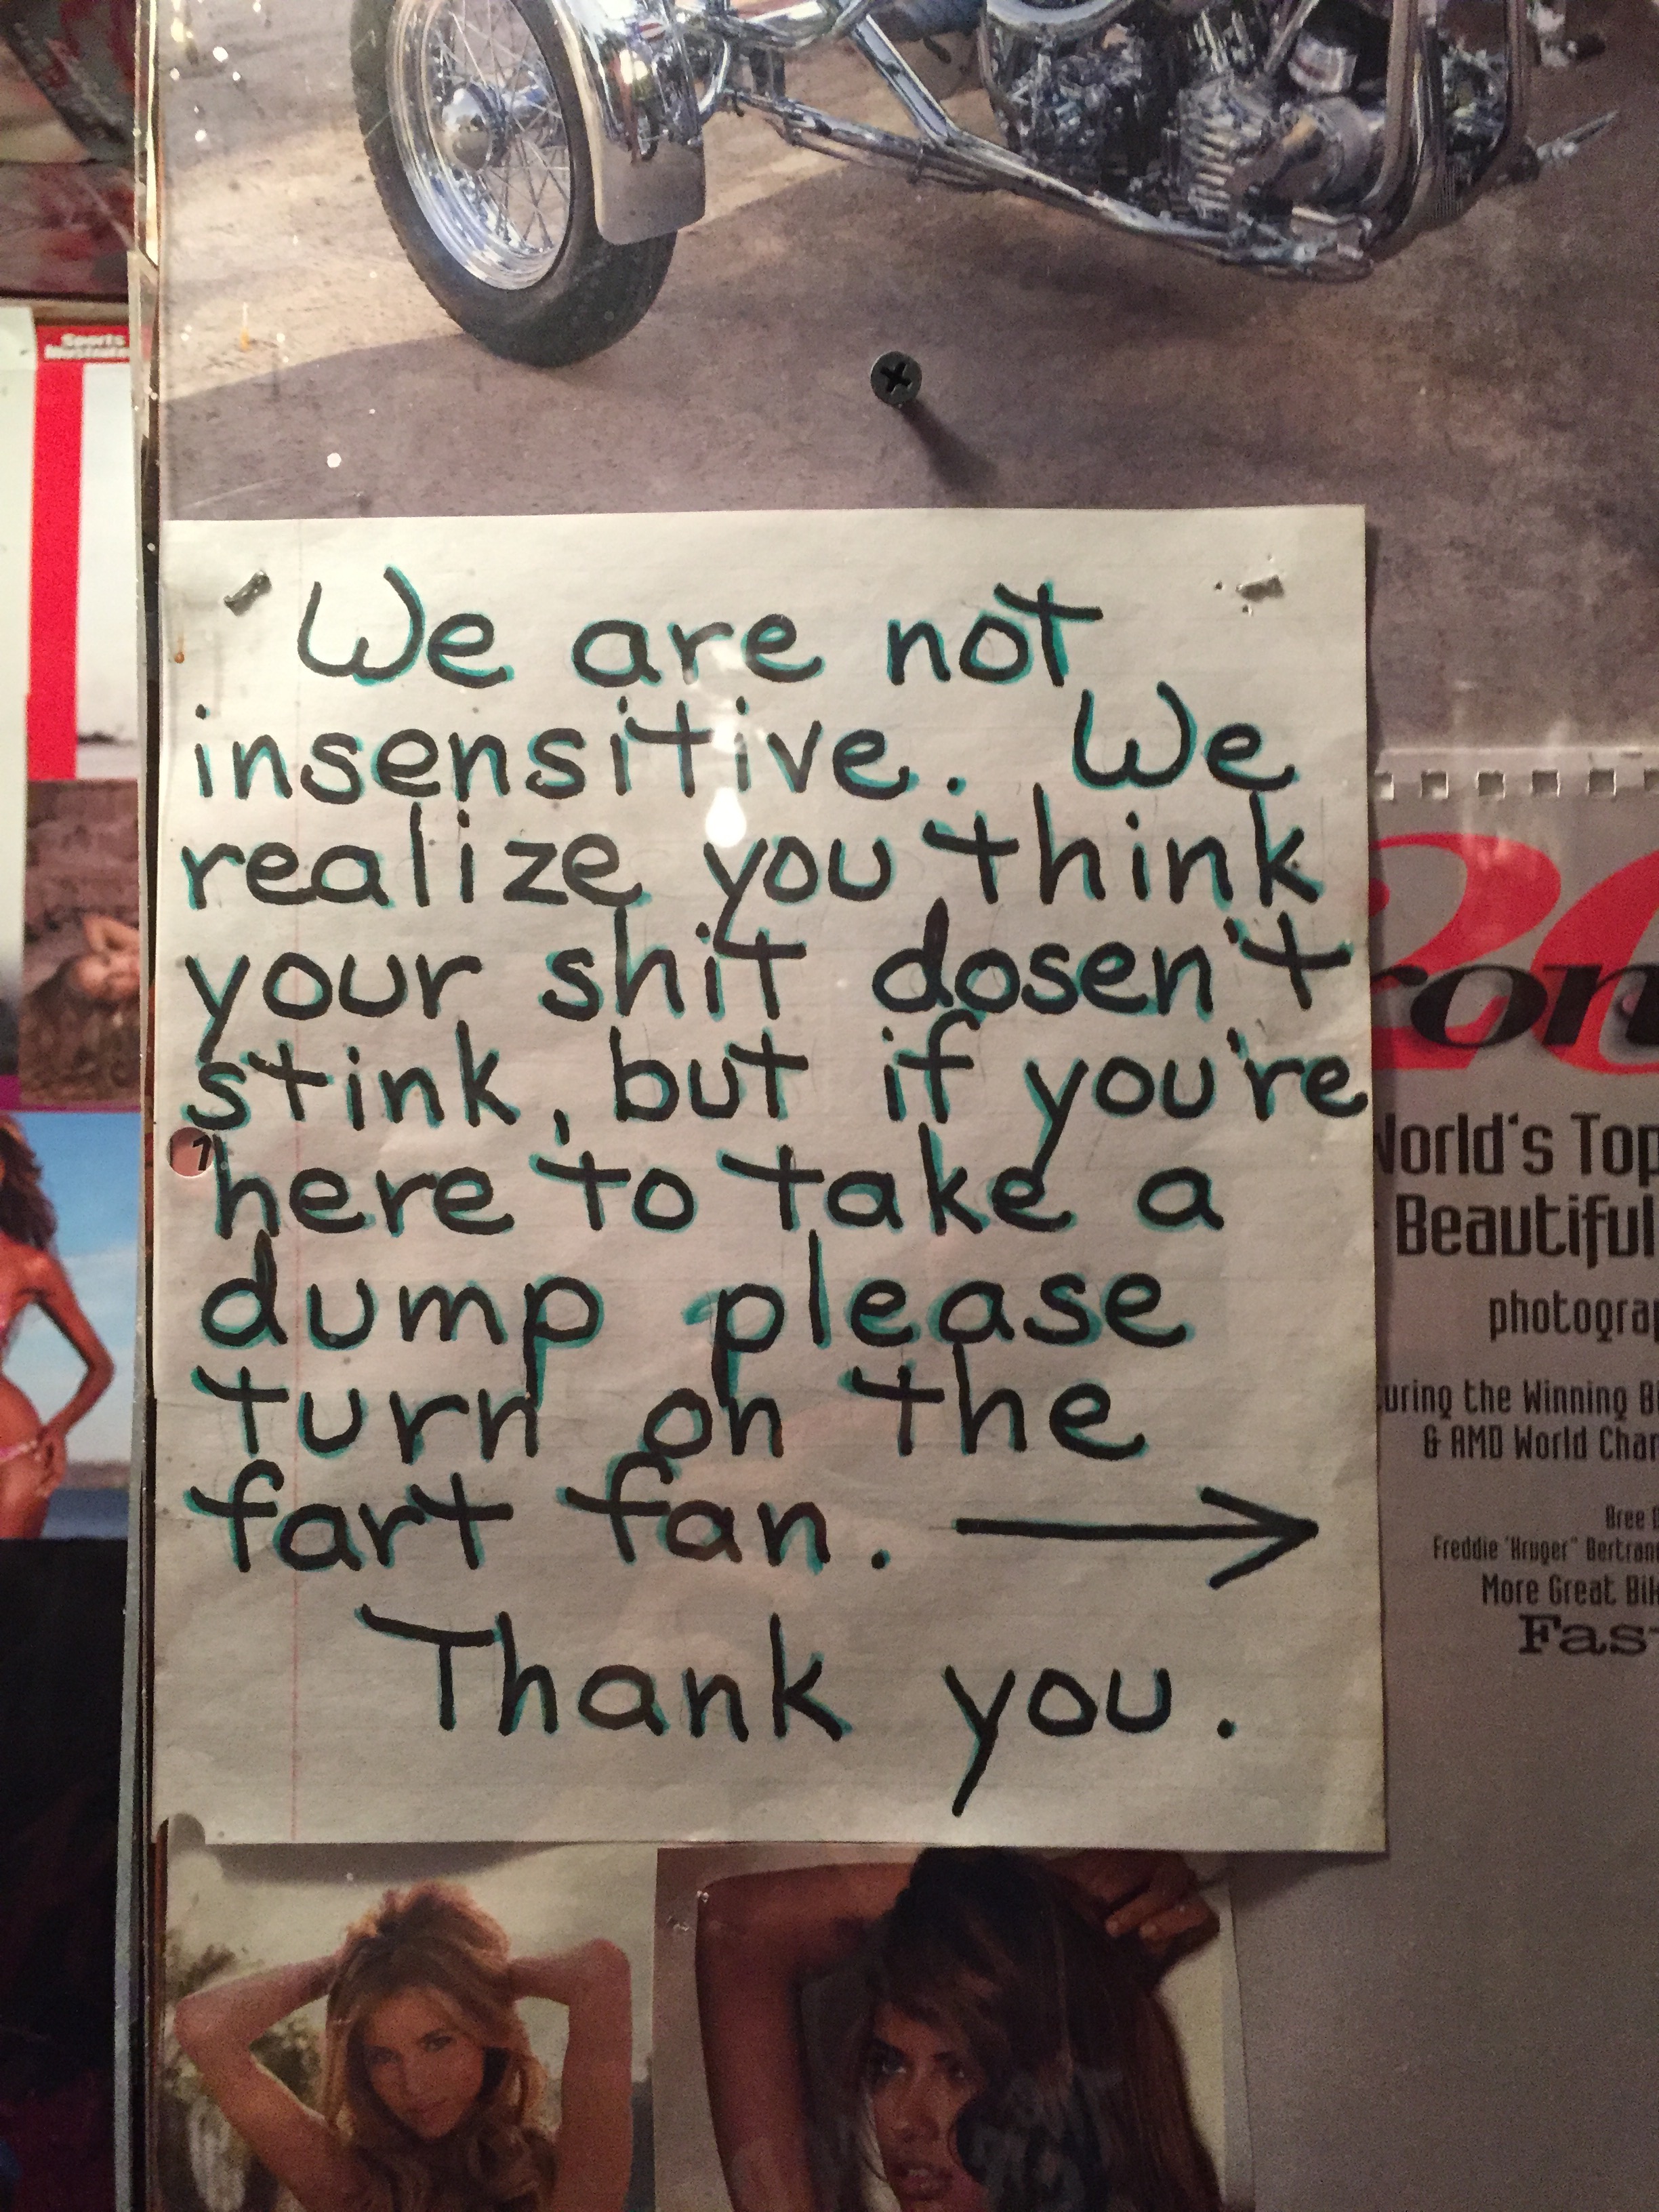 Sports
Illustrated
We are not
insensitive. We
realize you think
your shit dosen't
stink, but if you're
here to take a
dump please
turn on the
fart fan. →
Thank you.
20
World's Top
Beautiful
the Winning
& AMD World
Bree
Freddie "Kruger"
More Great